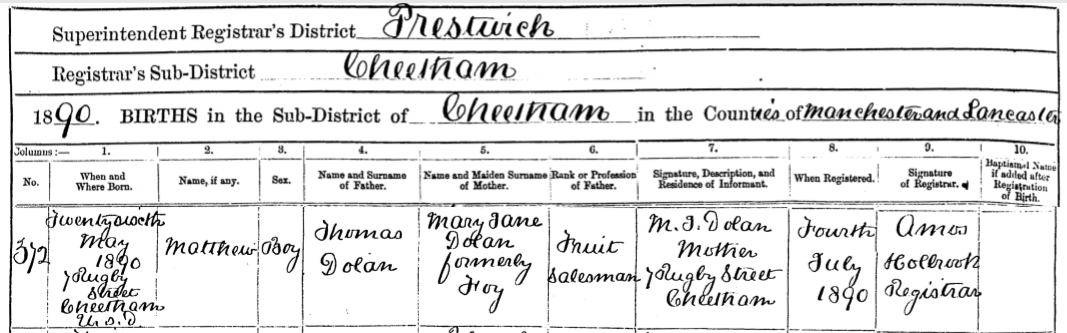 Superintendent Registrar's District Prestwich
Registrar's Sub-District Cheetham
1890. BIRTHS in the Sub-District of Cheetham in the Counties of Manchester and Lancaster
Columns:— 1. 2. 3. 4. 5. 6. 7. 8. 9. 10.
No. When and Where Born. Name, if any. Sex. Name and Surname of Father. Name and Maiden Surname of Mother. Rank or Profession of Father. Signature, Description, and Residence of Informant. When Registered. Signature of Registrar. Baptismal Name if added after Registration of Birth.
372
Twenty sixth
May
1890
7 Rugby
Street
Cheetham
U.S.D.
Matthew
Boy
Thomas
Dolan
Mary Jane
Dolan
formerly
Foy
Fruit
Salesman
M. J. Dolan
Mother
7 Rugby Street
Cheetham
Fourth
July
1890
Amos
Holbrook
Registrar